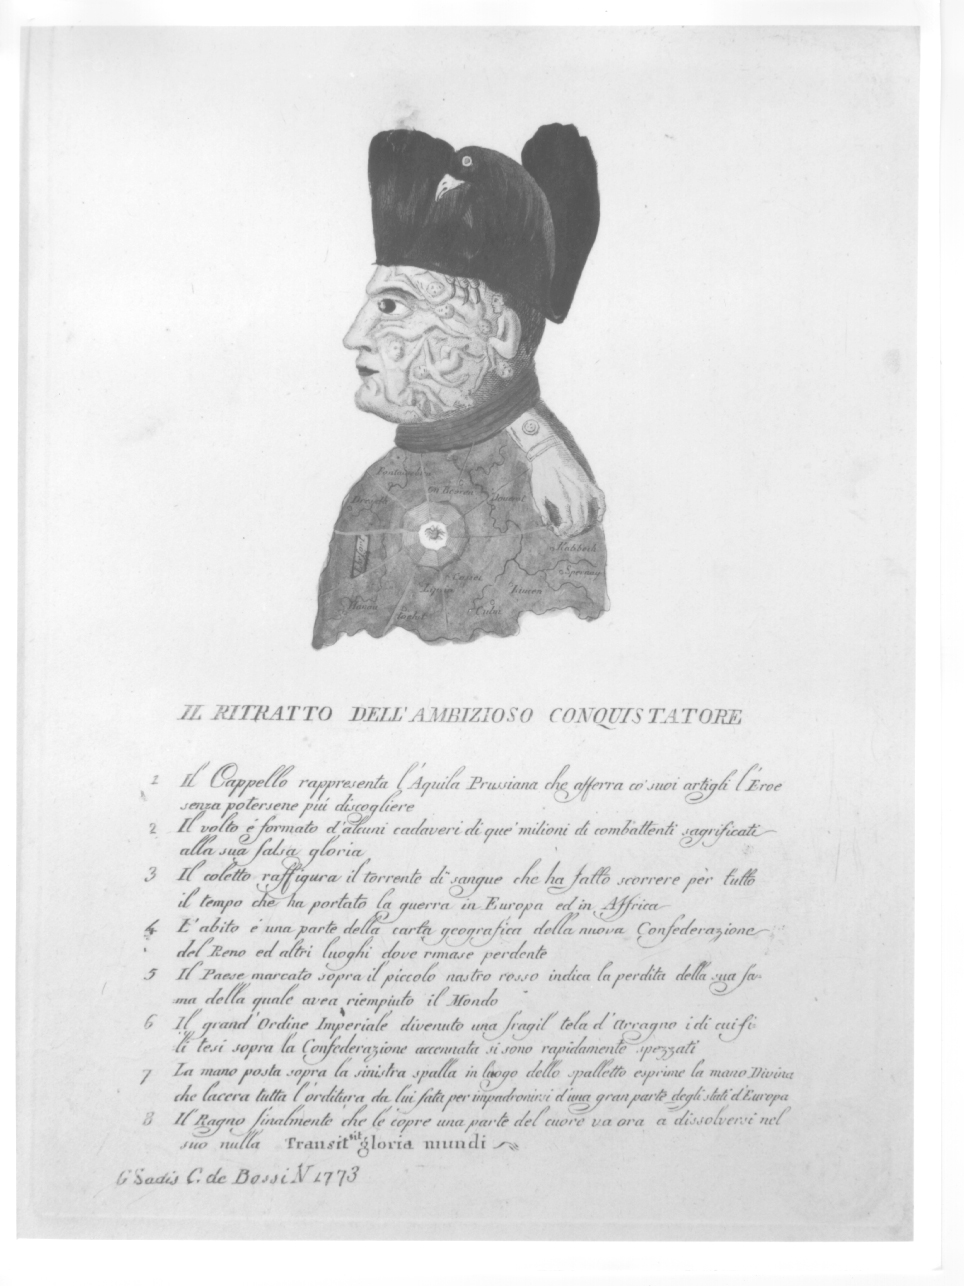 Breslau
Lützen
Ligni
Hanau
Culm
Katzbach
IL RITRATTO DELL'AMBIZIOSO CONQUISTATORE
1 Il Cappello rappresenta l'Aquila Prussiana che afferra co' suoi artigli l'Eroe
senza potersene piú discogliere
2 Il volto é formato d'alcuni cadaveri di que' milioni di combattenti sagrificati
alla sua falsa gloria
3 Il coletto raffigura il torrente di sangue che ha fatto scorrere pèr tutto
il tempo che ha portato la guerra in Europa ed in Affrica
4 L'abito é una parte della carta geografica della nuova Confederazione
del Reno ed altri luoghi dove rimase perdente
5 Il Paese marcato sopra il piccolo nastro rosso indica la perdita della sua fa-
ma della quale avea riempiuto il Mondo
6 Il grand'Ordine Imperiale divenuto una fragil tela d'Arragno i di cui fi-
li tesi sopra la Confederazione accennata si sono rapidamente spezzati
7 La mano posta sopra la sinistra spalla in luogo dello spalletto esprime la mano Divina
che lacera tutta l'orditura da lui fata per impadronirsi d'una gran parte degli stati d'Europa
8 Il Ragno finalmente che le copre una parte del cuore va ora a dissolversi nel
suo nulla Transit sit gloria mundi
G Sadis C. de Bossi N 1773